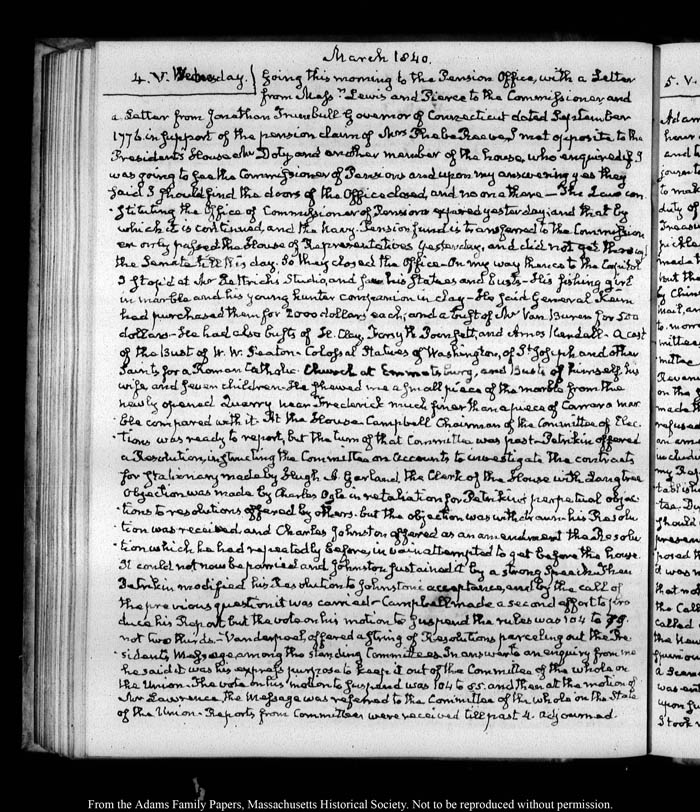 March 1840.
4. V. Wednesday. Going this morning to the Pension Office, with a Letter
from Mess.rs Lewis and Pierce to the Commissioner and
a Letter from Jonathan Trumbull Governor of Connecticut dated September
1776 in support of the pension claim of Mrs Phebe Reeve, I met opposite to the
President's House Mr Doty and another member of the house, who enquired if I
was going to see the Commissioner of Pensions and upon my answering yes they
said I should find the doors of the Office closed and no one there — The Law con
stituting the Office of Commissioner of Pensions expired yesterday; and that by
which it is continued, and the Navy Pension fund is transferred to the Commission
er only passed the House of Representatives yesterday, and did not get through
the Senate till this day. So they closed the Office — On my way thence to the Capitol
I stop'd at Mr Pettrich's Studio, and saw his Statues and busts — His fishing girl
in marble and his young hunter companion in clay — He said General Keim
had purchased them for 2000 dollars each, and a bust of Mr Van Buren for 500
dollars — He had also busts of H. Clay, Forsyth Poinsett, and Amos Kendall — A cast
of the Bust of W. W. Seaton — Colossal Statues of Washington, of St Joseph and other
Saints for a Roman Catholic Church at Emmetsburg, and Busts of himself, his
wife and seven children — He shewed me a small piece of the marble from the
newly opened Quarry near Frederick much finer than a piece of Carrara mar
ble compared with it. At the House — Campbell Chairman of the Committee of Elec
tions was ready to report, but the turn of that Committee was past — Petrikin offered
a Resolution, instructing the Committee on Accounts to investigate the contracts
for Stationary made by Hugh A Garland the Clerk of the House with Langtree
Objection was made by Charles Ogle in retaliation for Petrikin's perpetual objec
tions to resolutions offered by others. but the objection was withdrawn his Resolu
tion was received and Charles Johnston offered as an amendment the Resolu
tion which he had repeatedly before, in vain attempted to get before the house.
It could not now be parried and Johnston sustained it by a strong Speech. Then
Petrikin modified his Resolution to Johnston's acceptance, and by the call of
the previous question it was carried — Campbell made a second effort to pro
duce his Report, but the vote on his motion to suspend the rules was 104 to
not two thirds — Vanderpoel, offered a string of Resolutions parceling out the Pre
sident's Message, among the standing Committees. In answer to an enquiry from me
he said it was his express purpose to keep it out of the Committee of the whole on
the Union. The vote on his motion to suspend was 104 to 55. and then at the motion of
Mr Lawrence the Message was referred to the Committee of the whole on the State
of the Union — Reports from Committees were received till past 4. adjourned.
5. V.
From the Adams Family Papers, Massachusetts Historical Society. Not to be reproduced without permission.